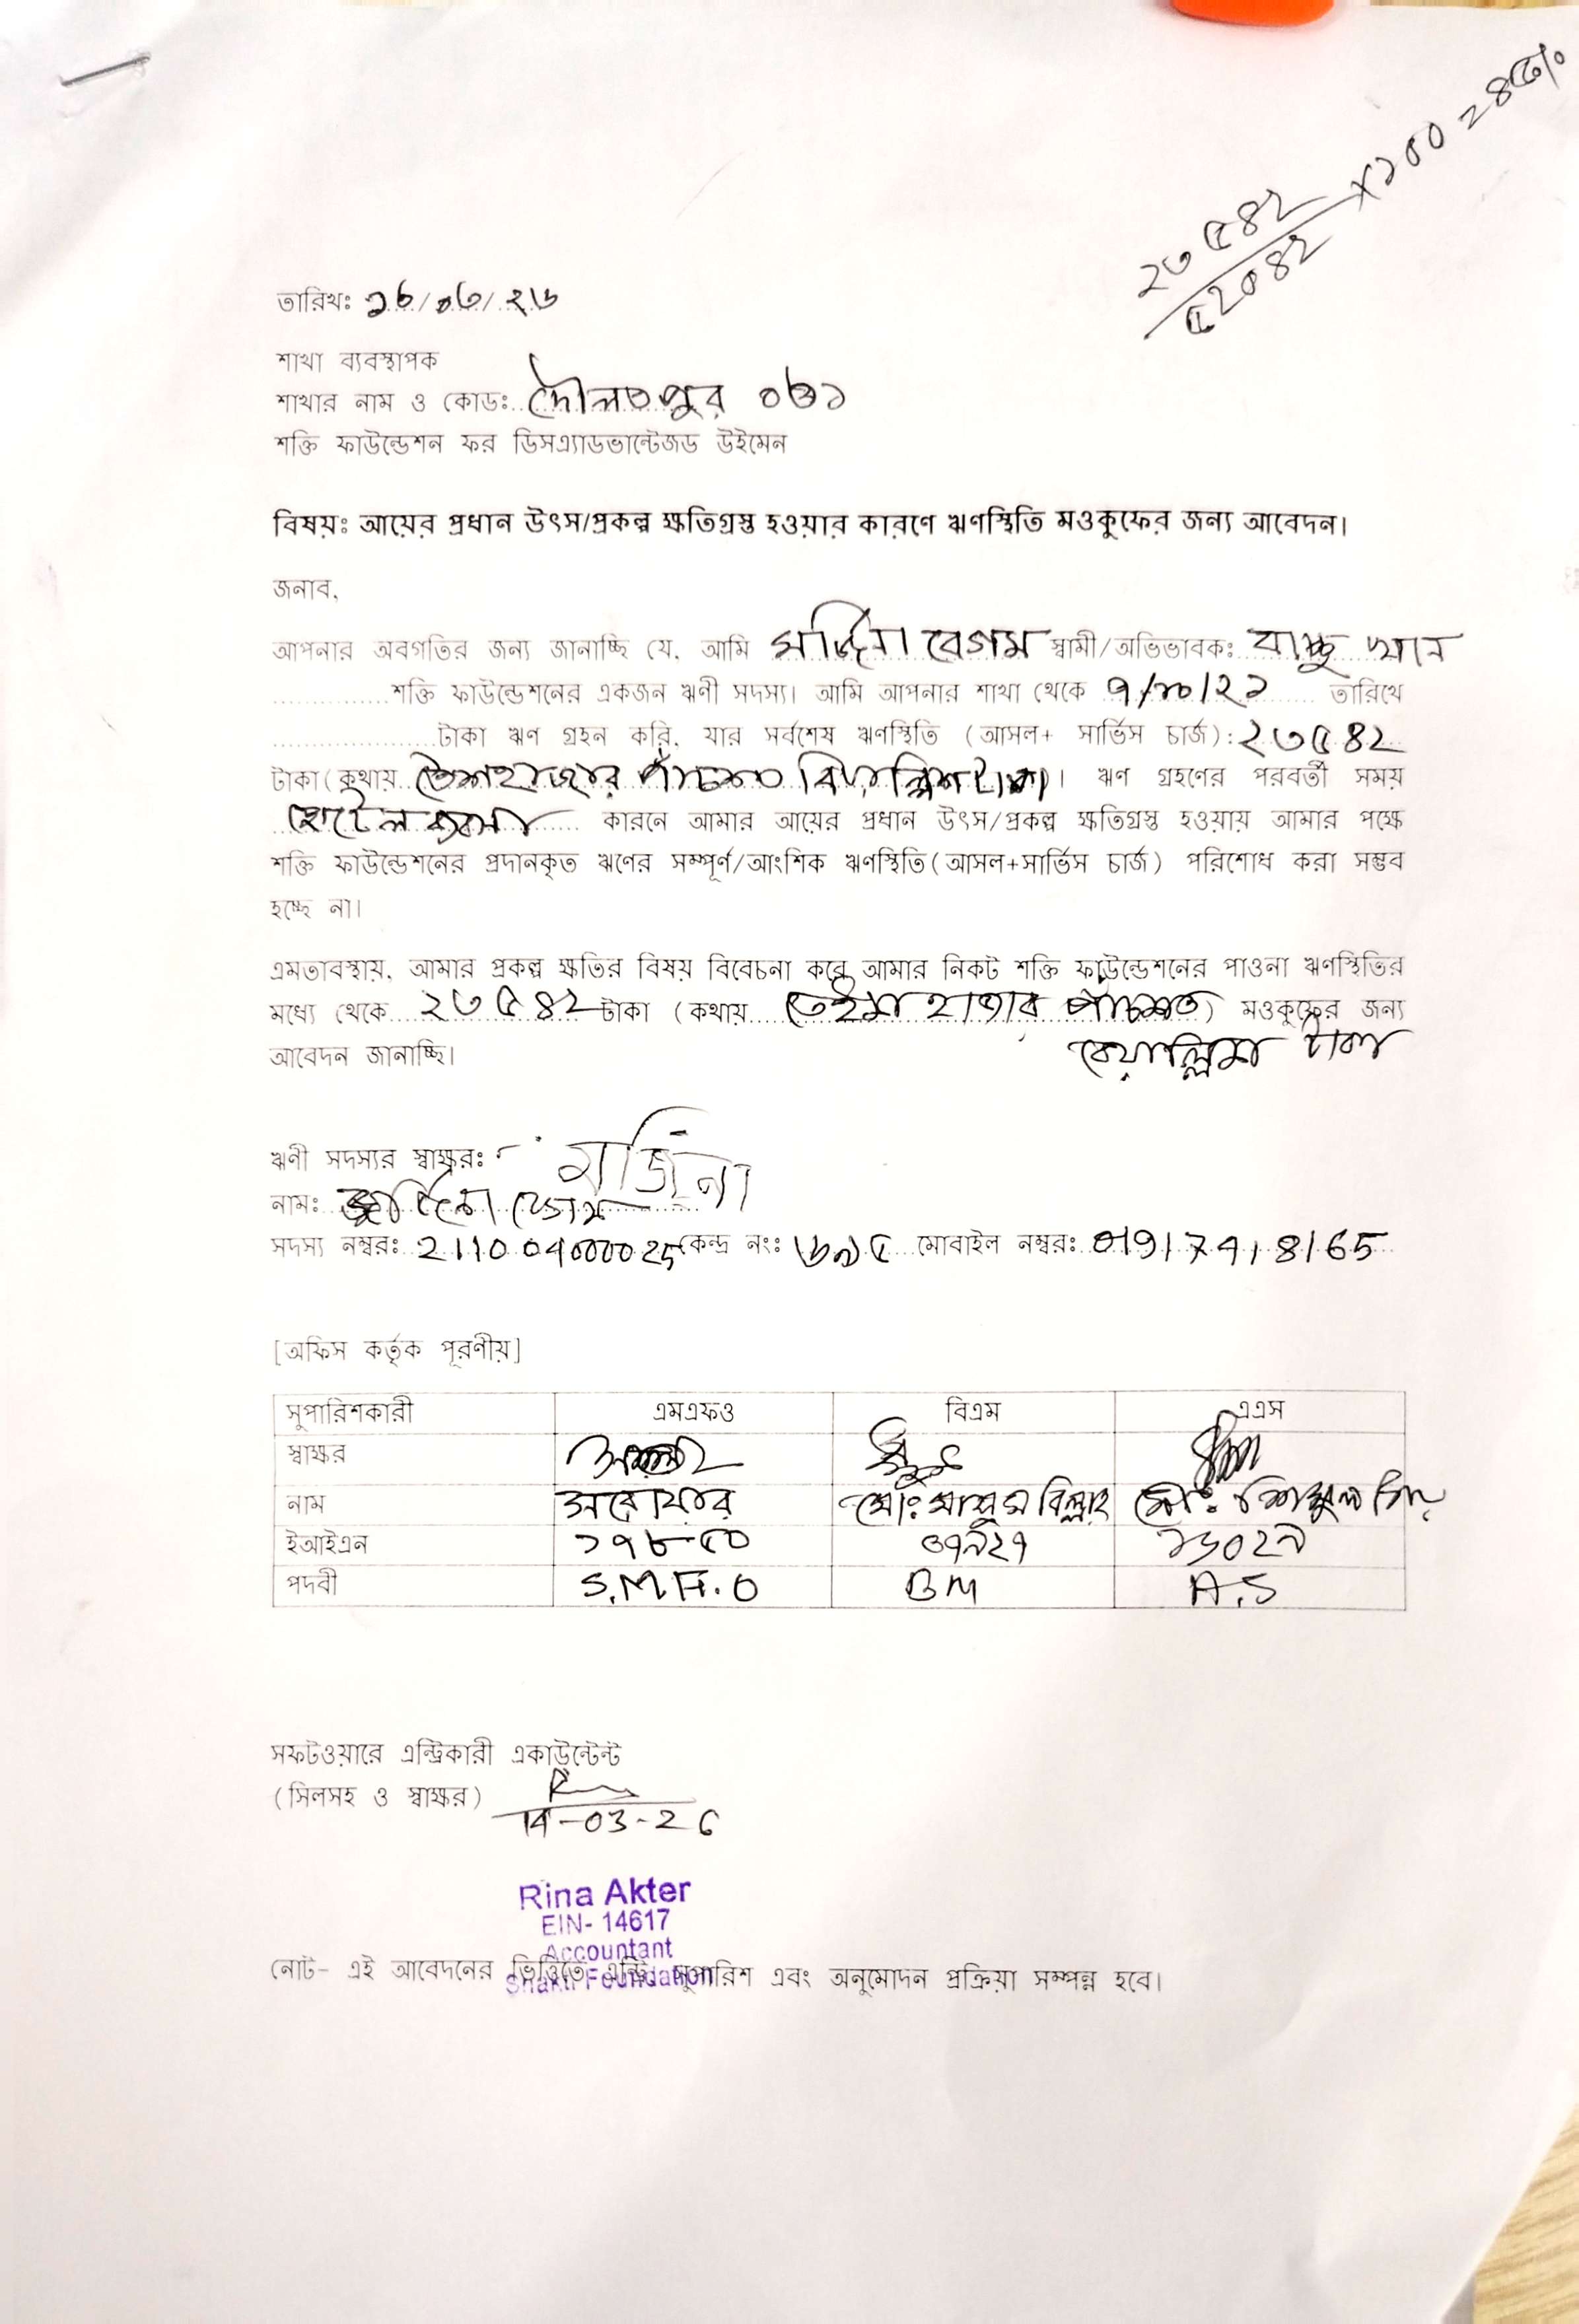 ২৩৫৪২
৫২০৪২ X১০০ = ৪৫%
তারিখঃ ১৬/০৩/২৬
শাখা ব্যবস্থাপক
শাখার নাম ও কোডঃ দৌলতপুর ০৬১
শক্তি ফাউন্ডেশন ফর ডিসএ্যাডভান্টেজড উইমেন
বিষয়ঃ আয়ের প্রধান উৎস/প্রকল্প ক্ষতিগ্রস্ত হওয়ার কারণে ঋণস্থিতি মওকুফের জন্য আবেদন।
জনাব,
আপনার অবগতির জন্য জানাচ্ছি যে, আমি মর্জিনা বেগম স্বামী/অভিভাবকঃ বাচ্চু খান
শক্তি ফাউন্ডেশনের একজন ঋণী সদস্য। আমি আপনার শাখা থেকে ৭/১০/২১ তারিখে
টাকা ঋণ গ্রহন করি, যার সর্বশেষ ঋণস্থিতি (আসল+ সার্ভিস চার্জ): ২৩৫৪২
টাকা (কথায় তেইশহাজার পাঁচশত বিয়াল্লিশ টাকা)। ঋণ গ্রহণের পরবর্তী সময়
হোটেল ব্যবসা কারনে আমার আয়ের প্রধান উৎস/প্রকল্প ক্ষতিগ্রস্ত হওয়ায় আমার পক্ষে
শক্তি ফাউন্ডেশনের প্রদানকৃত ঋণের সম্পূর্ণ/আংশিক ঋণস্থিতি(আসল+সার্ভিস চার্জ) পরিশোধ করা সম্ভব
হচ্ছে না।
এমতাবস্থায়, আমার প্রকল্প ক্ষতির বিষয় বিবেচনা করে আমার নিকট শক্তি ফাউন্ডেশনের পাওনা ঋণস্থিতির
মধ্যে থেকে ২৩৫৪২ টাকা (কথায় তেইশ হাজার পাঁচশত) মওকুফের জন্য
বেয়াল্লিশ টাকা
আবেদন জানাচ্ছি।
ঋণী সদস্যর স্বাক্ষরঃ মর্জিনা
নামঃ মর্জিনা বেগম
সদস্য নম্বরঃ 2110 04000025 কেন্দ্র নং: ৬৯৫ মোবাইল নম্বরঃ
[অফিস কর্তৃক পূরণীয়]
সুপারিশকারী এমএফও বিএম এএস
স্বাক্ষর
নাম আনোয়ার মোঃ মাসুম বিল্লাহ মোঃ শিমুল
ইআইএন ১৭৮৫০ ০৭৯২৭ ১৬০২৯
পদবী S.M.F.O BM A.S
সফটওয়ারে এন্ট্রিকারী একাউন্টেন্ট
(সিলসহ ও স্বাক্ষর)
14-03-26
Rina Akter
EIN- 14617
Accountant
Shakti Foundation
নোট- এই আবেদনের ভিত্তিতে এন্ট্রি সুপারিশ এবং অনুমোদন প্রক্রিয়া সম্পন্ন হবে।